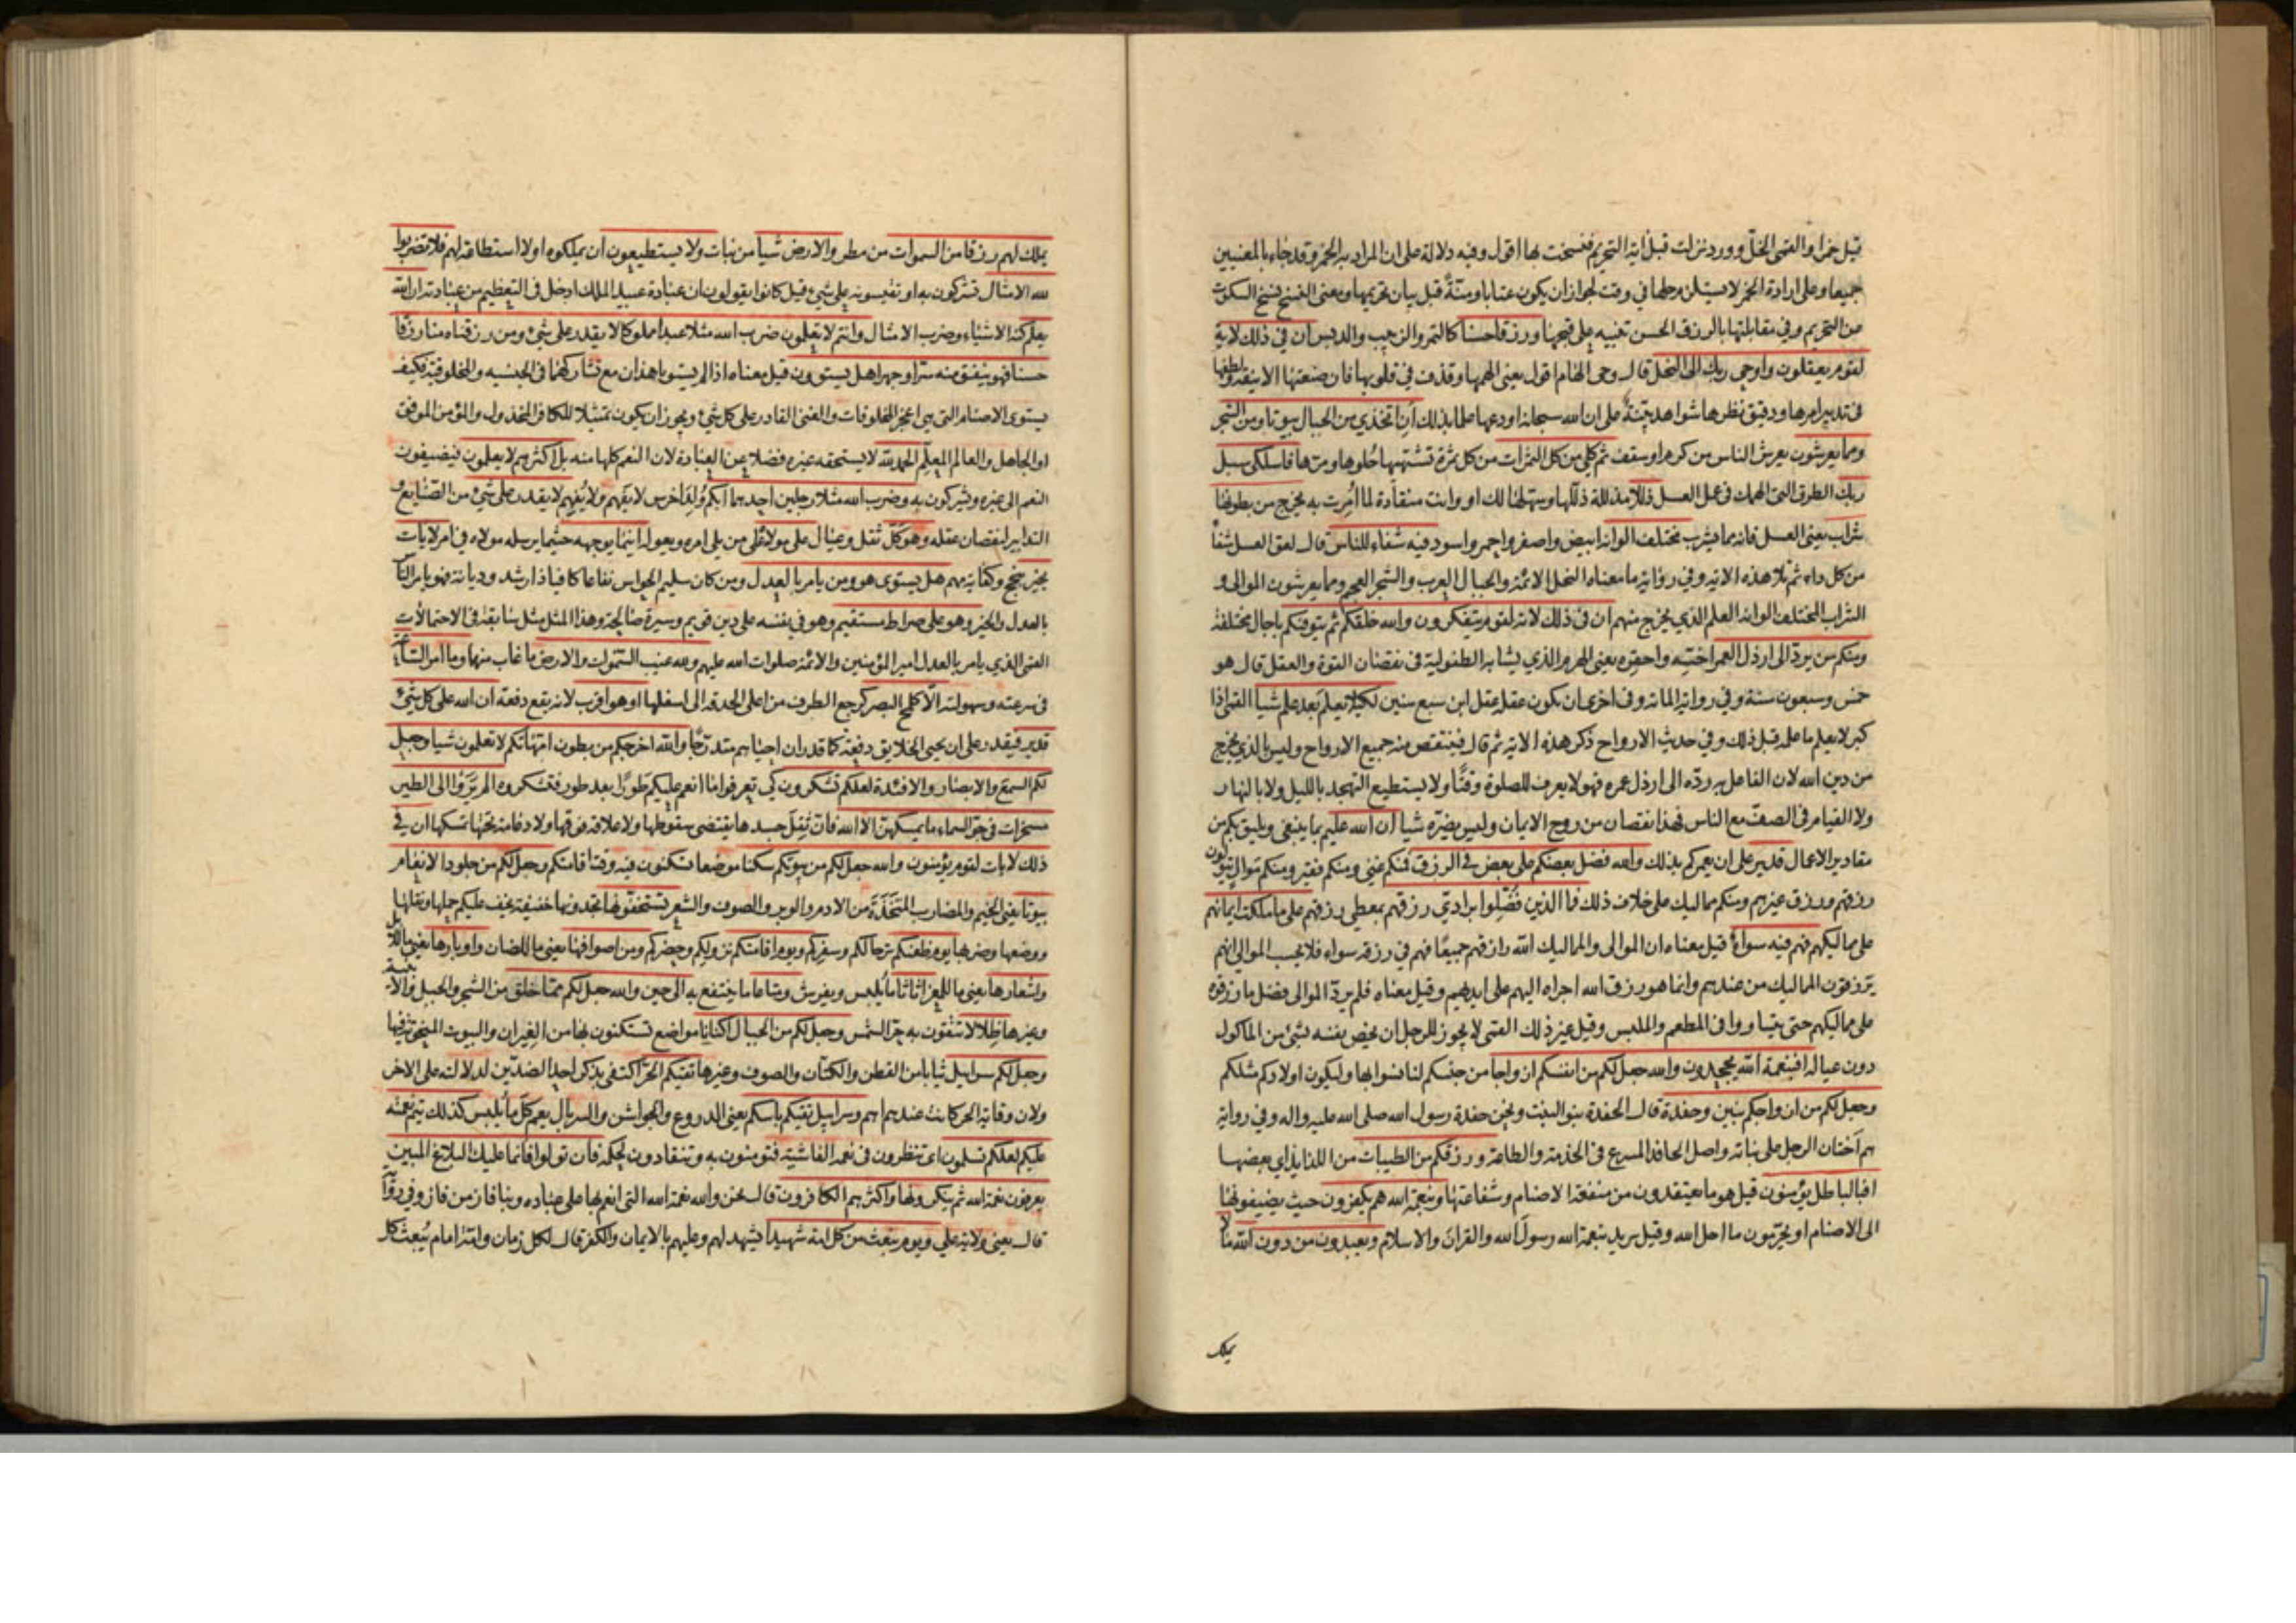 قيل خمرا والقمى الخلّ وورد نزلت قبل اية التحريم فنسخت بها اقول وفيه دلالة على ان المراد به الخمر وقد جاء بالمعنيين
جميعا وعلى ارادة الخمر لا يستلزم حلها في وقت لجواز ان يكون عتابا ومنّة قبل بيان تحريمها ومعنى النسخ نسخ السكوت
من التحريم وفي مقابلتها بالرزق الحسن تنبيه على قبحها ورزقا حسنا كالتمر والزبيب والدبس ان في ذلك لاية
لقوم يعقلون واوحى ربك الى النحل قال وحى الهام اقول يعنى الهمها وقذف في قلوبها فان صنعتها الانيقة ولطفها
فى تدبير امرها ودقيق نظرها شواهد بيّنة على ان الله سبحانه اودعها علما بذلك أن اتخذي من الجبال بيوتا ومن الشجر
ومما يعرشون يعرش الناس من كرم او سقف ثم كلي من كل الثمرات من كل ثمرة تشتهيها حُلوها ومرّها فاسلكى سبل
ربك الطرق التى الهمك في عمل العسل ذللا مذللة ذلّلها وسهّلها لك او وانت منقادة لما اُمرت به يخرج من بطونها
شراب يعنى العسل فانه مما يشرب مختلف الوانه ابيض واصفر واحمر واسود فيه شفاء للناس قال لعق العسل شفاء
من كل داء ثم تلا هذه الاية وفي رواية ما معناه النحل الائمة والجبال العرب والشجر العجم ومما يعرشون الموالى و
الشراب المختلف الوانه العلم الذي يخرج منهم ان فى ذلك لاية لقوم يتفكرون والله خلقكم ثم يتوفيكم باجال مختلفة
ومنكم من يردّ الى ارذل العمر اخسّه واحقره يعنى الهرم الذي يشابه الطفولية فى نقصان القوة والعقل قال هو
خمس وسبعون سنة وفي رواية المائة وفى اخرى ان يكون عقله عقل ابن سبع سنين لكيلا يعلم بعد علم شيأ القمى اذا
كبر لا يعلم ما علمه قبل ذلك وفي حديث الارواح ذكر هذه الاية ثم قال فينتقص منه جميع الارواح وليس بالذي يخرج
من دين الله لان الفاعل به ردّه الى ارذل عمره فهو لا يعرف للصلوة وقتًا ولا يستطيع التهجد بالليل ولا بالنهار
ولا القيام فى الصف مع الناس فهذا نقصان من روح الايمان وليس يضرّه شيأ ان الله عليم بما ينبغى ويليق بكم من
مقادير الاعمال قدير على ان يعمركم بذلك والله فضل بعضكم على بعض في الرزق فمنكم غني ومنكم فقير ومنكم موال يتولون
رزقهم ورزق غيرهم ومنكم مماليك على خلاف ذلك فما الذين فُضّلوا برادّي رزقهم بمعطى رزقهم على ما ملكت ايمانهم
على مماليكهم فهم فيه سواء قيل معناه ان الموالى والمماليك الله رازقهم جميعًا فهم في رزقه سواء فلا يحسب الموالى انهم
يرزقون المماليك من عندهم وانما هو رزق الله اجراه اليهم على ايديهم وقيل معناه فلم يردّ الموالى فضل ما رزقوه
على مماليكهم حتى يتساووا فى المطعم والملبس وقيل غير ذلك القمى لا يجوز للرجل ان يخص نفسه بشئ من الماكول
دون عياله افبنعمة الله يجحدون والله جعل لكم من انفسكم ازواجا من جنسكم لتانسوا بها وليكون اولادكم مثلكم
وجعل لكم من ازواجكم بنين وحفدة قال الحفدة بنو البنت ونحن حفدة رسول الله صلى الله عليه واله وفي رواية
هم اَختان الرجل على بناته واصل الحافد المسرع فى الخدمة والطاعة ورزقكم من الطيبات من اللذايذ اي بعضها
افبالباطل يؤمنون قيل هو ما يعتقدون من منفعة الاصنام وشفاعتها وبنعمة الله هم يكفرون حيث يضيفونها
الى الاصنام او يحرّمون ما احل الله وقيل يريد بنعمة الله رسول الله والقران والاسلام ويعبدون من دون الله ما لا
يملك
يملك لهم رزقا من السموات من مطر والارض شيأ من نبات ولا يستطيعون ان يملكوه او لا استطاعة لهم فلا تضربوا
لله الامثال فتشركون به او تقيسونه على شئ قيل كانوا يقولون ان عبادة عبيد الملك ادخل فى التعظيم من عبادته ان الله
يعلم كنه الاشياء وضرب الامثال وانتم لا تعلمون ضرب الله مثلا عبدا مملوكا لا يقدر على شئ ومن رزقناه منا رزقا
حسنا فهو ينفق منه سرّا وجهرا هل يستوون قيل معناه اذا لم يستو باهذان مع تشاركهما فى الجنسية والمخلوقية فكيف
يستوى الاصنام التى هى اعجز المخلوقات والغنى القادر على كل شئ ويجوز ان يكون تمثيلا للكافر المخذول والمؤمن الموفق
او الجاهل والعالم المعلّم الحمد لله لا يستحقه غيره فضلا عن العبادة لان النعم كلها منه بل اكثرهم لا يعلمون فيضيفون
النعم الى غيره ويشركون به وضرب الله مثلا رجلين احدهما ابكم وُلِدَ اخرس لا يَفهم ولا يُفهِم لا يقدر على شئ من الصنايع و
التدابير لنقصان عقله وهو كَلّ ثقل وعيال على مولاه على من يلى امره ويعوله اينما يوجهه حيثما يرسله مولاه في امر لا يات
بخير بنجح وكفاية مهم هل يستوى هو ومن يامر بالعدل ومن كان سليم الحواس نفاعا كافيا ذا رشد وديانة فهو يامر الناس
بالعدل والخير وهو على صراط مستقيم وهو في نفسه على دين قويم وسيرة صالحة وهذا المثل مثل سابقه فى الاحتمالات
القمى الذي يامر بالعدل امير المؤمنين والائمة صلوات الله عليهم ولله غيب السموات والارض ما غاب منها وما امر الساعة
فى سرعته وسهولته الّا كلمح البصر كرجع الطرف من اعلى الحدقة الى اسفلها او هو اقرب لانه يقع دفعة ان الله على كل شئ
قدير فيقدر على ان يحيى الخلايق دفعة كما قدر ان احياهم متدرّجًا والله اخرجكم من بطون امهاتكم لا تعلمون شيا وجعل
لكم السمع والابصار والافئدة لعلكم تشكرون كي تعرفوا ما انعم عليكم طورًا بعد طور فتشكروه الم يَرَوا الى الطير
مسخرات فى جوّ السماء ما يمسكهنّ الا الله فان ثِقَل جسدها يقتضى سقوطها ولا علاقة فوقها ولا دعامة تحتها تمسكها ان في
ذلك لايات لقوم يؤمنون والله جعل لكم من بيوتكم سكنا موضعا تسكنون فيه وقت اقامتكم وجعل لكم من جلود الانعام
بيوتا يعنى الخيم والمضارب المتّخَذة من الادم والوبر والصوف والشعر تستخفّونها تجدونها خفيفة يخف عليكم حملها ونقلها
ووضعها وضربها يوم ظعنكم ترحالكم وسفركم ويوم اقامتكم نزولكم وحضركم ومن اصوافها يعنى ما للضان واوبارها يعني ما للابل
واشعارها يعنى ما للمعز اثاثا ما يُلبس ويفرش ومتاعا ما ينتفع به الى حين والله جعل لكم مما خلق من الشجر والجبل والابنية
وغيرها ظِلالا تتقون به حرّ الشمس وجعل لكم من الجبال اكنانا مواضع تستكنون بها من الغيران والبيوت المنحوتة فيها
وجعل لكم سرابيل ثيابا من القطن والكتان والصوف وغيرها تقيكم الحرّ اكتفى بذكر احد الضدّين لدلالته على الاخر
ولان وقاية الحر كانت عندهم اهم وسرابيل تقيكم باسكم يعنى الدروع والجواشن والسربال يعم كلّ ما يُلبس كذلك يتم نعمته
عليكم لعلكم تسلمون اى تنظرون فى نعمه الفاشية فتومنون به وتنقادون لحكمه فان تولوا فانما عليك البلاغ المبين
يعرفون نعمة الله ثم ينكرونها واكثرهم الكافرون قال نحن والله نعمة الله التى انعم بها على عباده وبنا فاز من فاز وفي رواية
قال يعنى ولاية علي ويوم نبعث من كل امة شهيدا يشهد لهم وعليهم بالايمان والكفر قال لكل زمان وامّة امام يُبعث كل